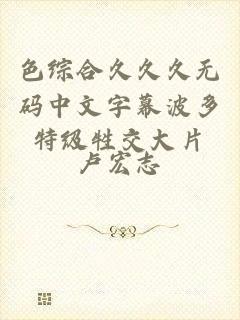 色综合久久久无
码中文字幕波多
特级牲交大片
卢宏志